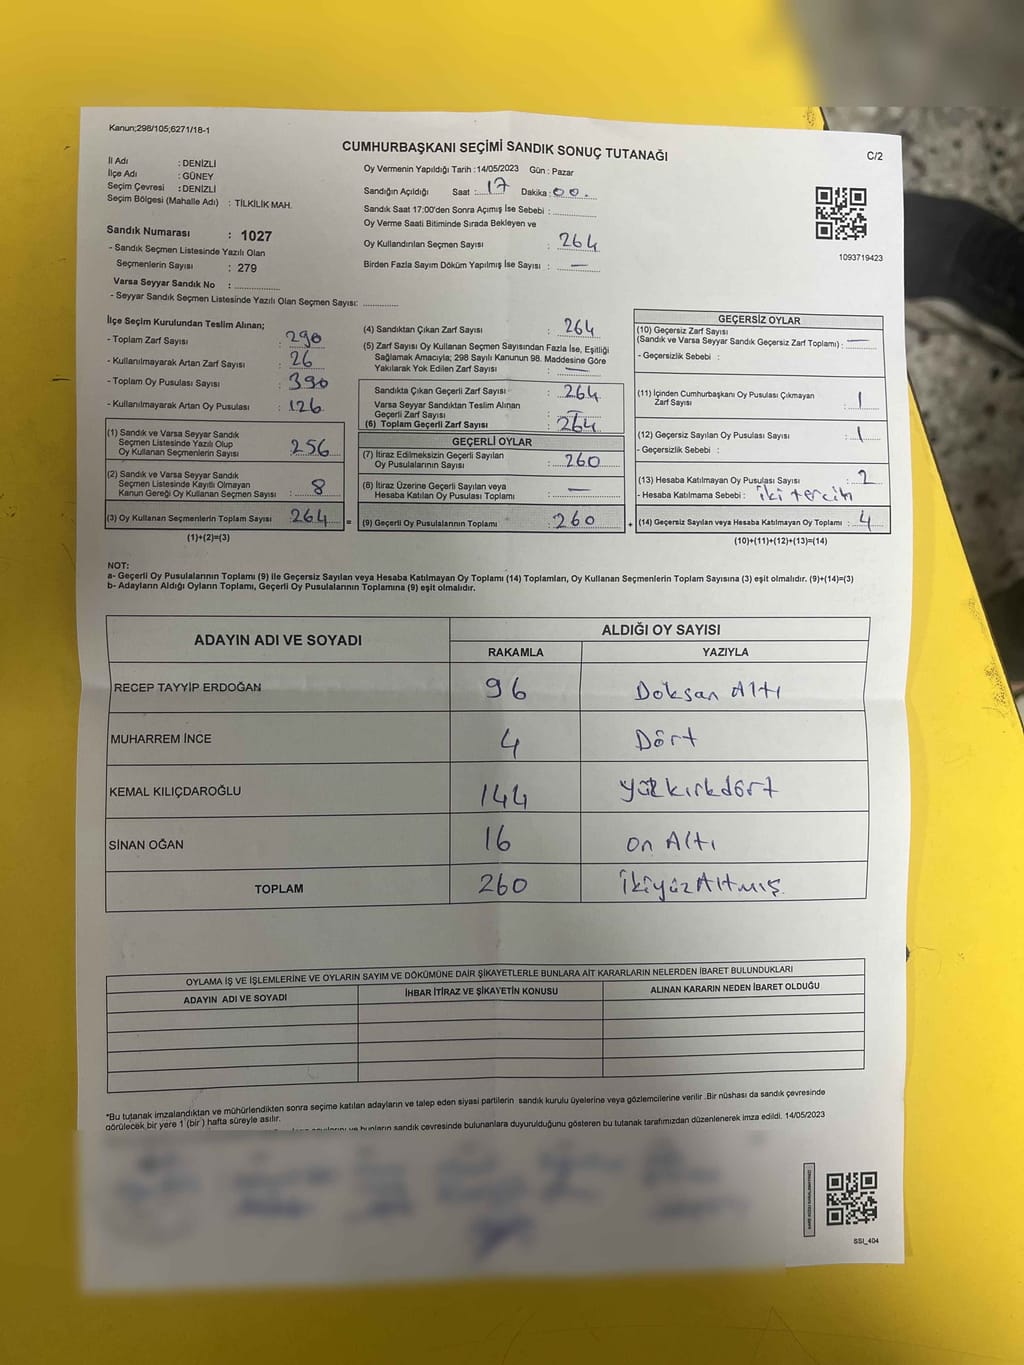 Kanun;298/105;6271/18-1
CUMHURBAŞKANI SEÇİMİ SANDIK SONUÇ TUTANAĞI
C/2
İl Adı : DENİZLİ
İlçe Adı : GÜNEY
Seçim Çevresi : DENİZLİ
Seçim Bölgesi (Mahalle Adı) : TİLKİLİK MAH.
Sandık Numarası : 1027
- Sandık Seçmen Listesinde Yazılı Olan
Seçmenlerin Sayısı : 279
Varsa Seyyar Sandık No : ................
- Seyyar Sandık Seçmen Listesinde Yazılı Olan Seçmen Sayısı: ............
Oy Vermenin Yapıldığı Tarih : 14/05/2023 Gün : Pazar
Sandığın Açıldığı Saat : 17 Dakika : 00.
Sandık Saat 17:00'den Sonra Açımış İse Sebebi : ..............
Oy Verme Saati Bitiminde Sırada Bekleyen ve
Oy Kullandırılan Seçmen Sayısı : 264
Birden Fazla Sayım Döküm Yapılmış İse Sayısı : —
1093719423
İlçe Seçim Kurulundan Teslim Alınan;
- Toplam Zarf Sayısı : 290
- Kullanılmayarak Artan Zarf Sayısı : 26
- Toplam Oy Pusulası Sayısı : 390
- Kullanılmayarak Artan Oy Pusulası : 126
(1) Sandık ve Varsa Seyyar Sandık
Seçmen Listesinde Yazılı Olup
Oy Kullanan Seçmenlerin Sayısı : 256
(2) Sandık ve Varsa Seyyar Sandık
Seçmen Listesinde Kayıtlı Olmayan
Kanun Gereği Oy Kullanan Seçmen Sayısı : 8
(3) Oy Kullanan Seçmenlerin Toplam Sayısı : 264 =
(1)+(2)=(3)
(4) Sandıktan Çıkan Zarf Sayısı : 264
(5) Zarf Sayısı Oy Kullanan Seçmen Sayısından Fazla İse, Eşitliği
Sağlamak Amacıyla; 298 Sayılı Kanunun 98. Maddesine Göre
Yakılarak Yok Edilen Zarf Sayısı : —
Sandıkta Çıkan Geçerli Zarf Sayısı : 264
Varsa Seyyar Sandıktan Teslim Alınan
Geçerli Zarf Sayısı : —
(6) Toplam Geçerli Zarf Sayısı : 264
GEÇERLİ OYLAR
(7) İtiraz Edilmeksizin Geçerli Sayılan
Oy Pusulalarının Sayısı : 260
(8) İtiraz Üzerine Geçerli Sayılan veya
Hesaba Katılan Oy Pusulası Toplamı : —
(9) Geçerli Oy Pusulalarının Toplamı : 260 +
GEÇERSİZ OYLAR
(10) Geçersiz Zarf Sayısı
(Sandık ve Varsa Seyyar Sandık Geçersiz Zarf Toplamı) : —
- Geçersizlik Sebebi :
(11) İçinden Cumhurbaşkanı Oy Pusulası Çıkmayan
Zarf Sayısı : 1
(12) Geçersiz Sayılan Oy Pusulası Sayısı : 1
- Geçersizlik Sebebi :
(13) Hesaba Katılmayan Oy Pusulası Sayısı : 2
- Hesaba Katılmama Sebebi : iki tercih
(14) Geçersiz Sayılan veya Hesaba Katılmayan Oy Toplamı : 4
(10)+(11)+(12)+(13)=(14)
NOT:
a- Geçerli Oy Pusulalarının Toplamı (9) ile Geçersiz Sayılan veya Hesaba Katılmayan Oy Toplamı (14) Toplamları, Oy Kullanan Seçmenlerin Toplam Sayısına (3) eşit olmalıdır. (9)+(14)=(3)
b- Adayların Aldığı Oyların Toplamı, Geçerli Oy Pusulalarının Toplamına (9) eşit olmalıdır.
ADAYIN ADI VE SOYADI ALDIĞI OY SAYISI
RAKAMLA YAZIYLA
RECEP TAYYİP ERDOĞAN 96 Doksan Altı
MUHARREM İNCE 4 Dört
KEMAL KILIÇDAROĞLU 144 yüzkırkdört
SİNAN OĞAN 16 on Altı
TOPLAM 260 İkiyüzAltmış
OYLAMA İŞ VE İŞLEMLERİNE VE OYLARIN SAYIM VE DÖKÜMÜNE DAİR ŞİKAYETLERLE BUNLARA AİT KARARLARIN NELERDEN İBARET BULUNDUKLARI
ADAYIN ADI VE SOYADI İHBAR İTİRAZ VE ŞİKAYETİN KONUSU ALINAN KARARIN NEDEN İBARET OLDUĞU
*Bu tutanak imzalandıktan ve mühürlendikten sonra seçime katılan adayların ve talep eden siyasi partilerin sandık kurulu üyelerine veya gözlemcilerine verilir .Bir nüshası da sandık çevresinde
görülecek bir yere 1 (bir ) hafta süreyle asılır.
ve bunların sandık çevresinde bulunanlara duyurulduğunu gösteren bu tutanak tarafımızdan düzenlenerek imza edildi. 14/05/2023
SSI_404